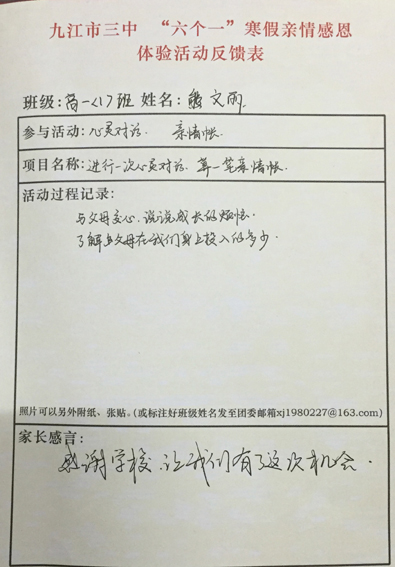 九江市三中 “六个一”寒假亲情感恩
体验活动反馈表
班级:高一<17班 姓名: 文丽
参与活动:心灵对话. 亲情帐.
项目名称:进行一次心灵对话. 算一笔亲情帐.
活动过程记录:
与父母交心,说说成长的烦恼.
了解自父母在我们身上投入的多少
照片可以另外附纸、张贴。(或标注好班级姓名发至团委邮箱xj1980227@163.com)
家长感言:
感谢学校.让我们有了这次机会.